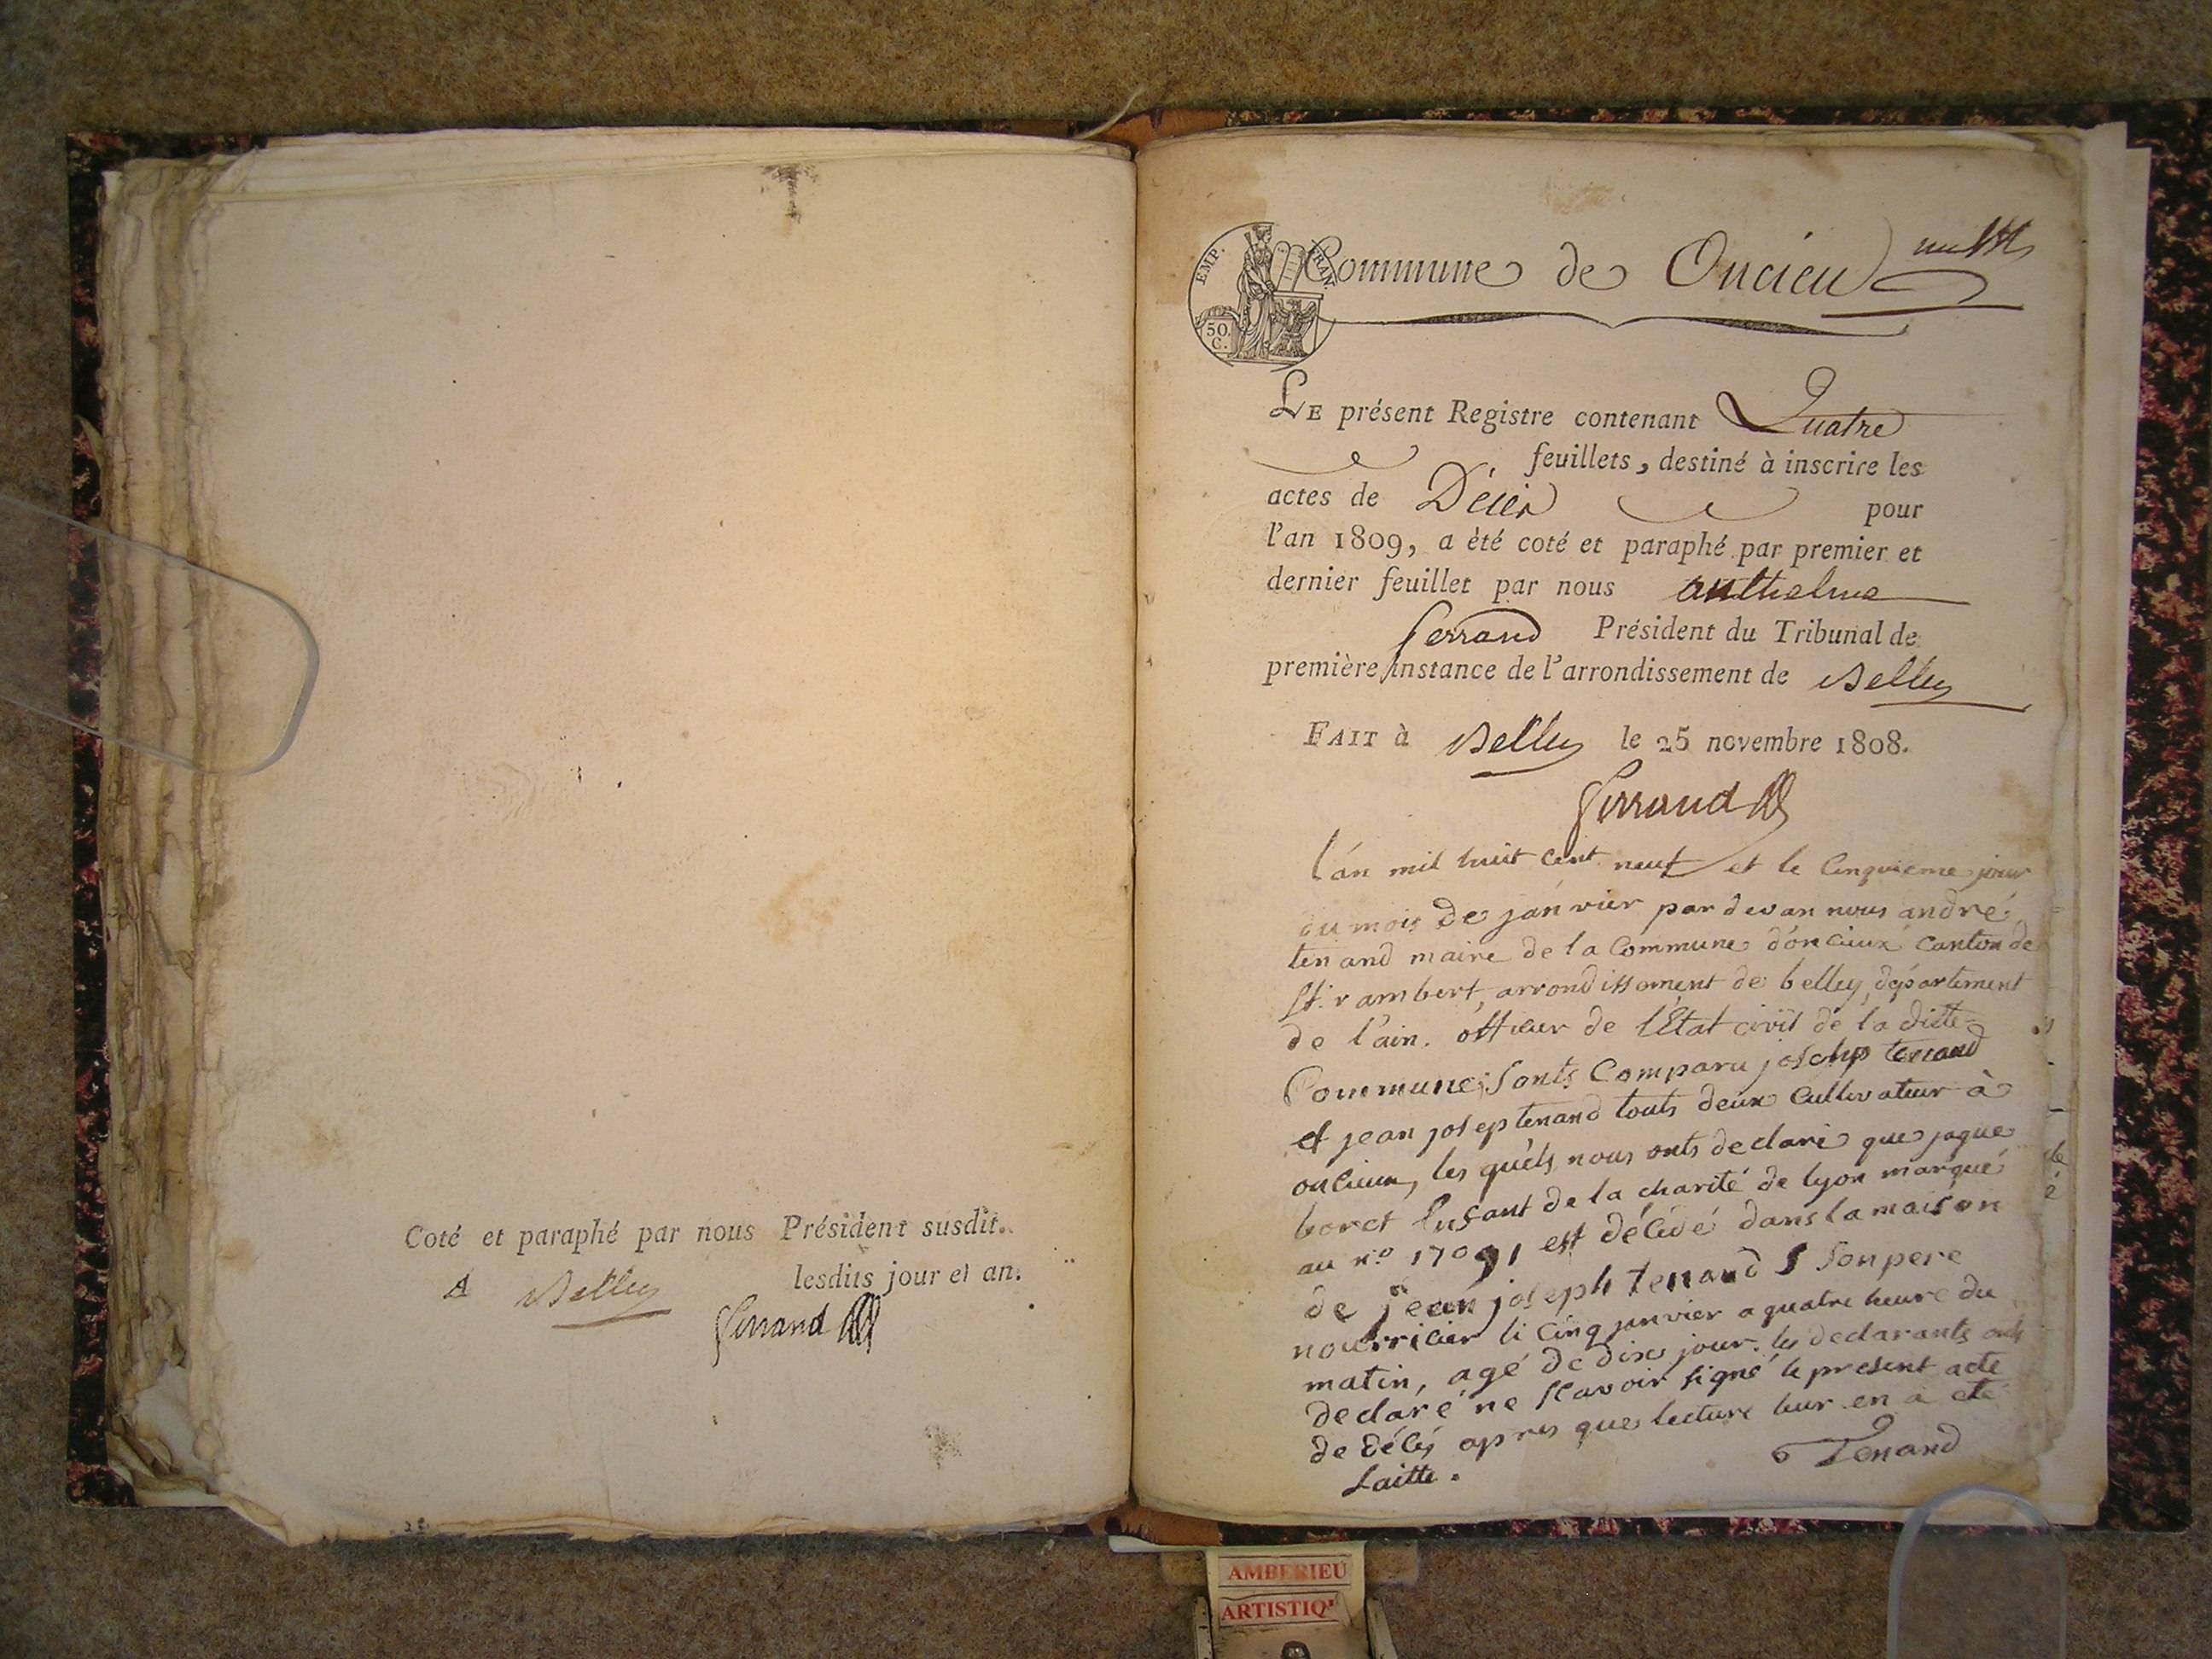 Coté et paraphé par nous Président susdit.
A Belley lesdits jour et an.
Ferrand
EMP. FRAN.
50.
C.
Commune de Oncieu
Le présent Registre contenant Quatre
feuillets, destiné à inscrire les
actes de Décès pour
l'an 1809, a été coté et paraphé par premier et
dernier feuillet par nous anthelme
ferrand Président du Tribunal de
première instance de l'arrondissement de Belley
Fait à Belley le 25 novembre 1808.
Ferrand
l'an mil huit cent neuf et le cinquieme jour
du mois de janvier par devan nous andré
tenand maire de la Commune d'oncieux canton de
St. rambert, arrondissement de belley, département
de l'ain. officier de l'État civil de la dicte
Commune; sonts Comparu joseph tenand
et jean josep tenand touts deux Cultivateur à
oncieux, les quels nous onts declaré que jaque
boret enfant de la charité de lyon marqué
au n.o 17091 est décédé dans la maison
de jean joseph tenand son pere
nourricier le cinq janvier a quatre heure du
matin, agé de dix jour. les declarants onts
declaré ne scavoir signé le present acte
de décés apres que lecture leur en a eté
faitte.
Tenand
AMBERIEU
ARTISTIQ'